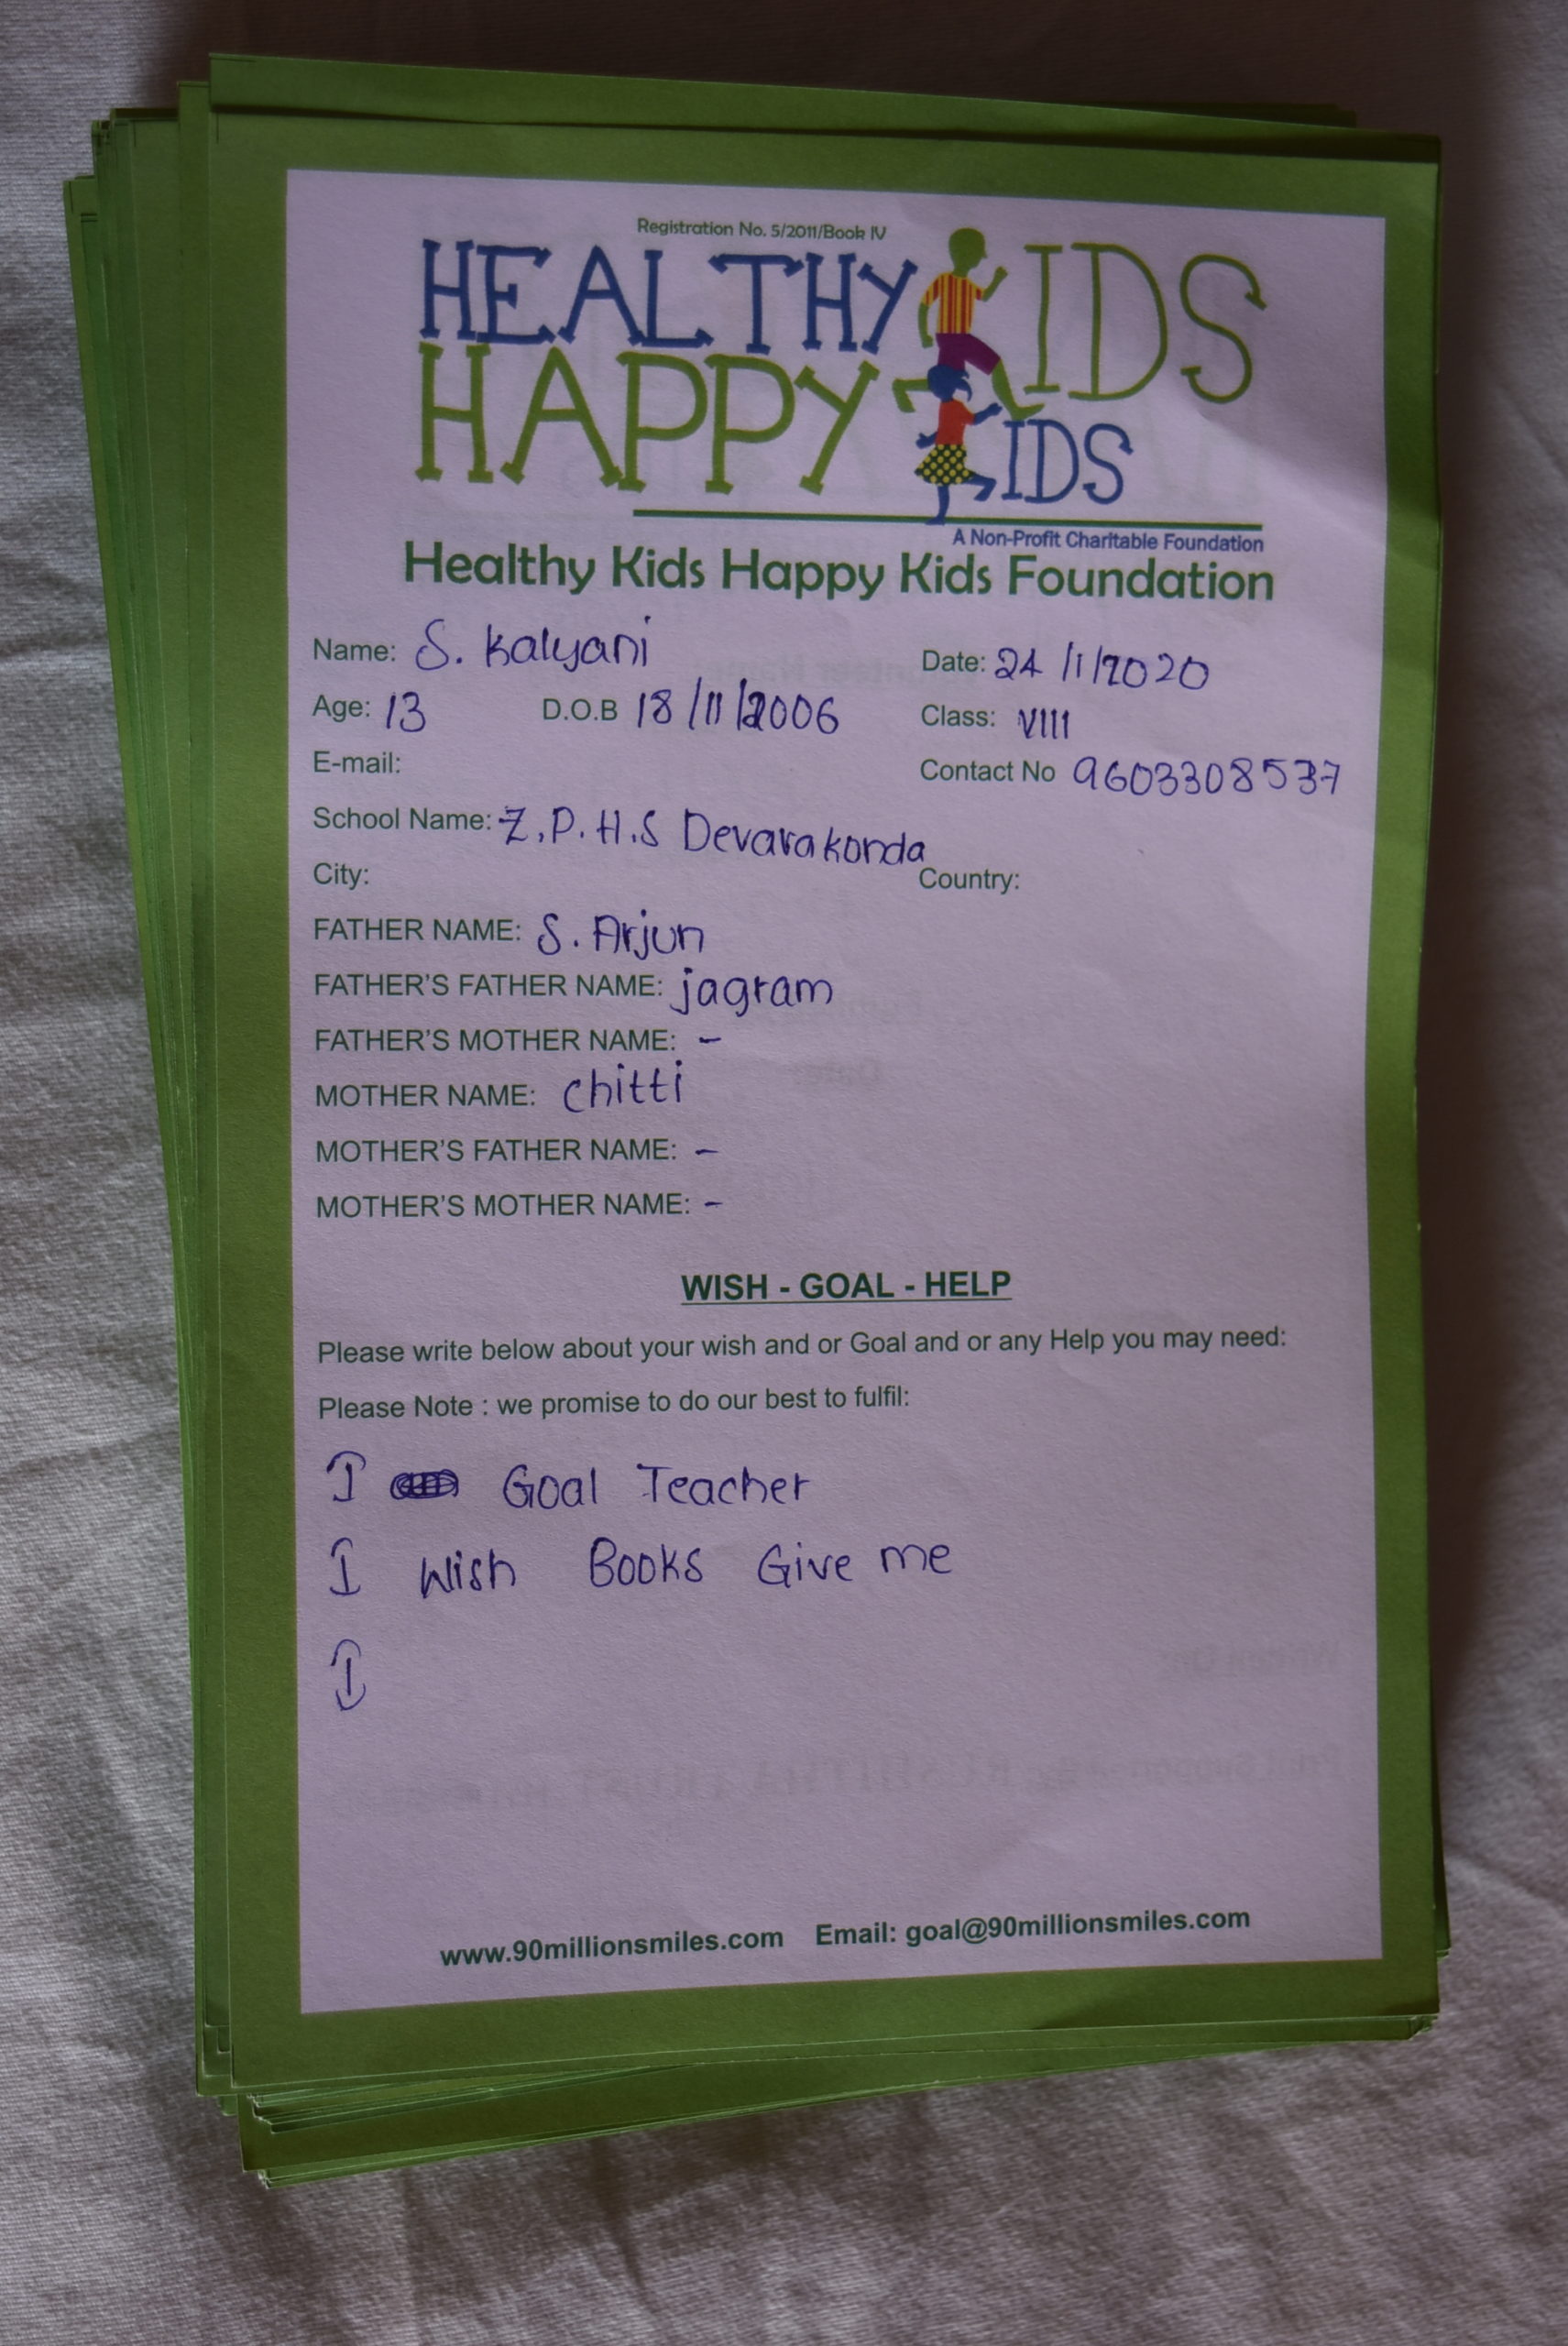 Registration No. 5/2011/Book IV
HEALTHY KIDS
HAPPY KIDS
A Non-Profit Charitable Foundation
Healthy Kids Happy Kids Foundation
Name: S. Kalyani Date: 24/1/2020
Age: 13 D.O.B 18/11/2006 Class: VIII
E-mail: Contact No 9603308537
School Name: Z.P.H.S Devarakonda
City: Country:
FATHER NAME: S. Arjun
FATHER'S FATHER NAME: jagram
FATHER'S MOTHER NAME: -
MOTHER NAME: chitti
MOTHER'S FATHER NAME: -
MOTHER'S MOTHER NAME: -
WISH - GOAL - HELP
Please write below about your wish and or Goal and or any Help you may need:
Please Note : we promise to do our best to fulfil:
I Goal Teacher
I Wish Books Give me
I
www.90millionsmiles.com Email: goal@90millionsmiles.com